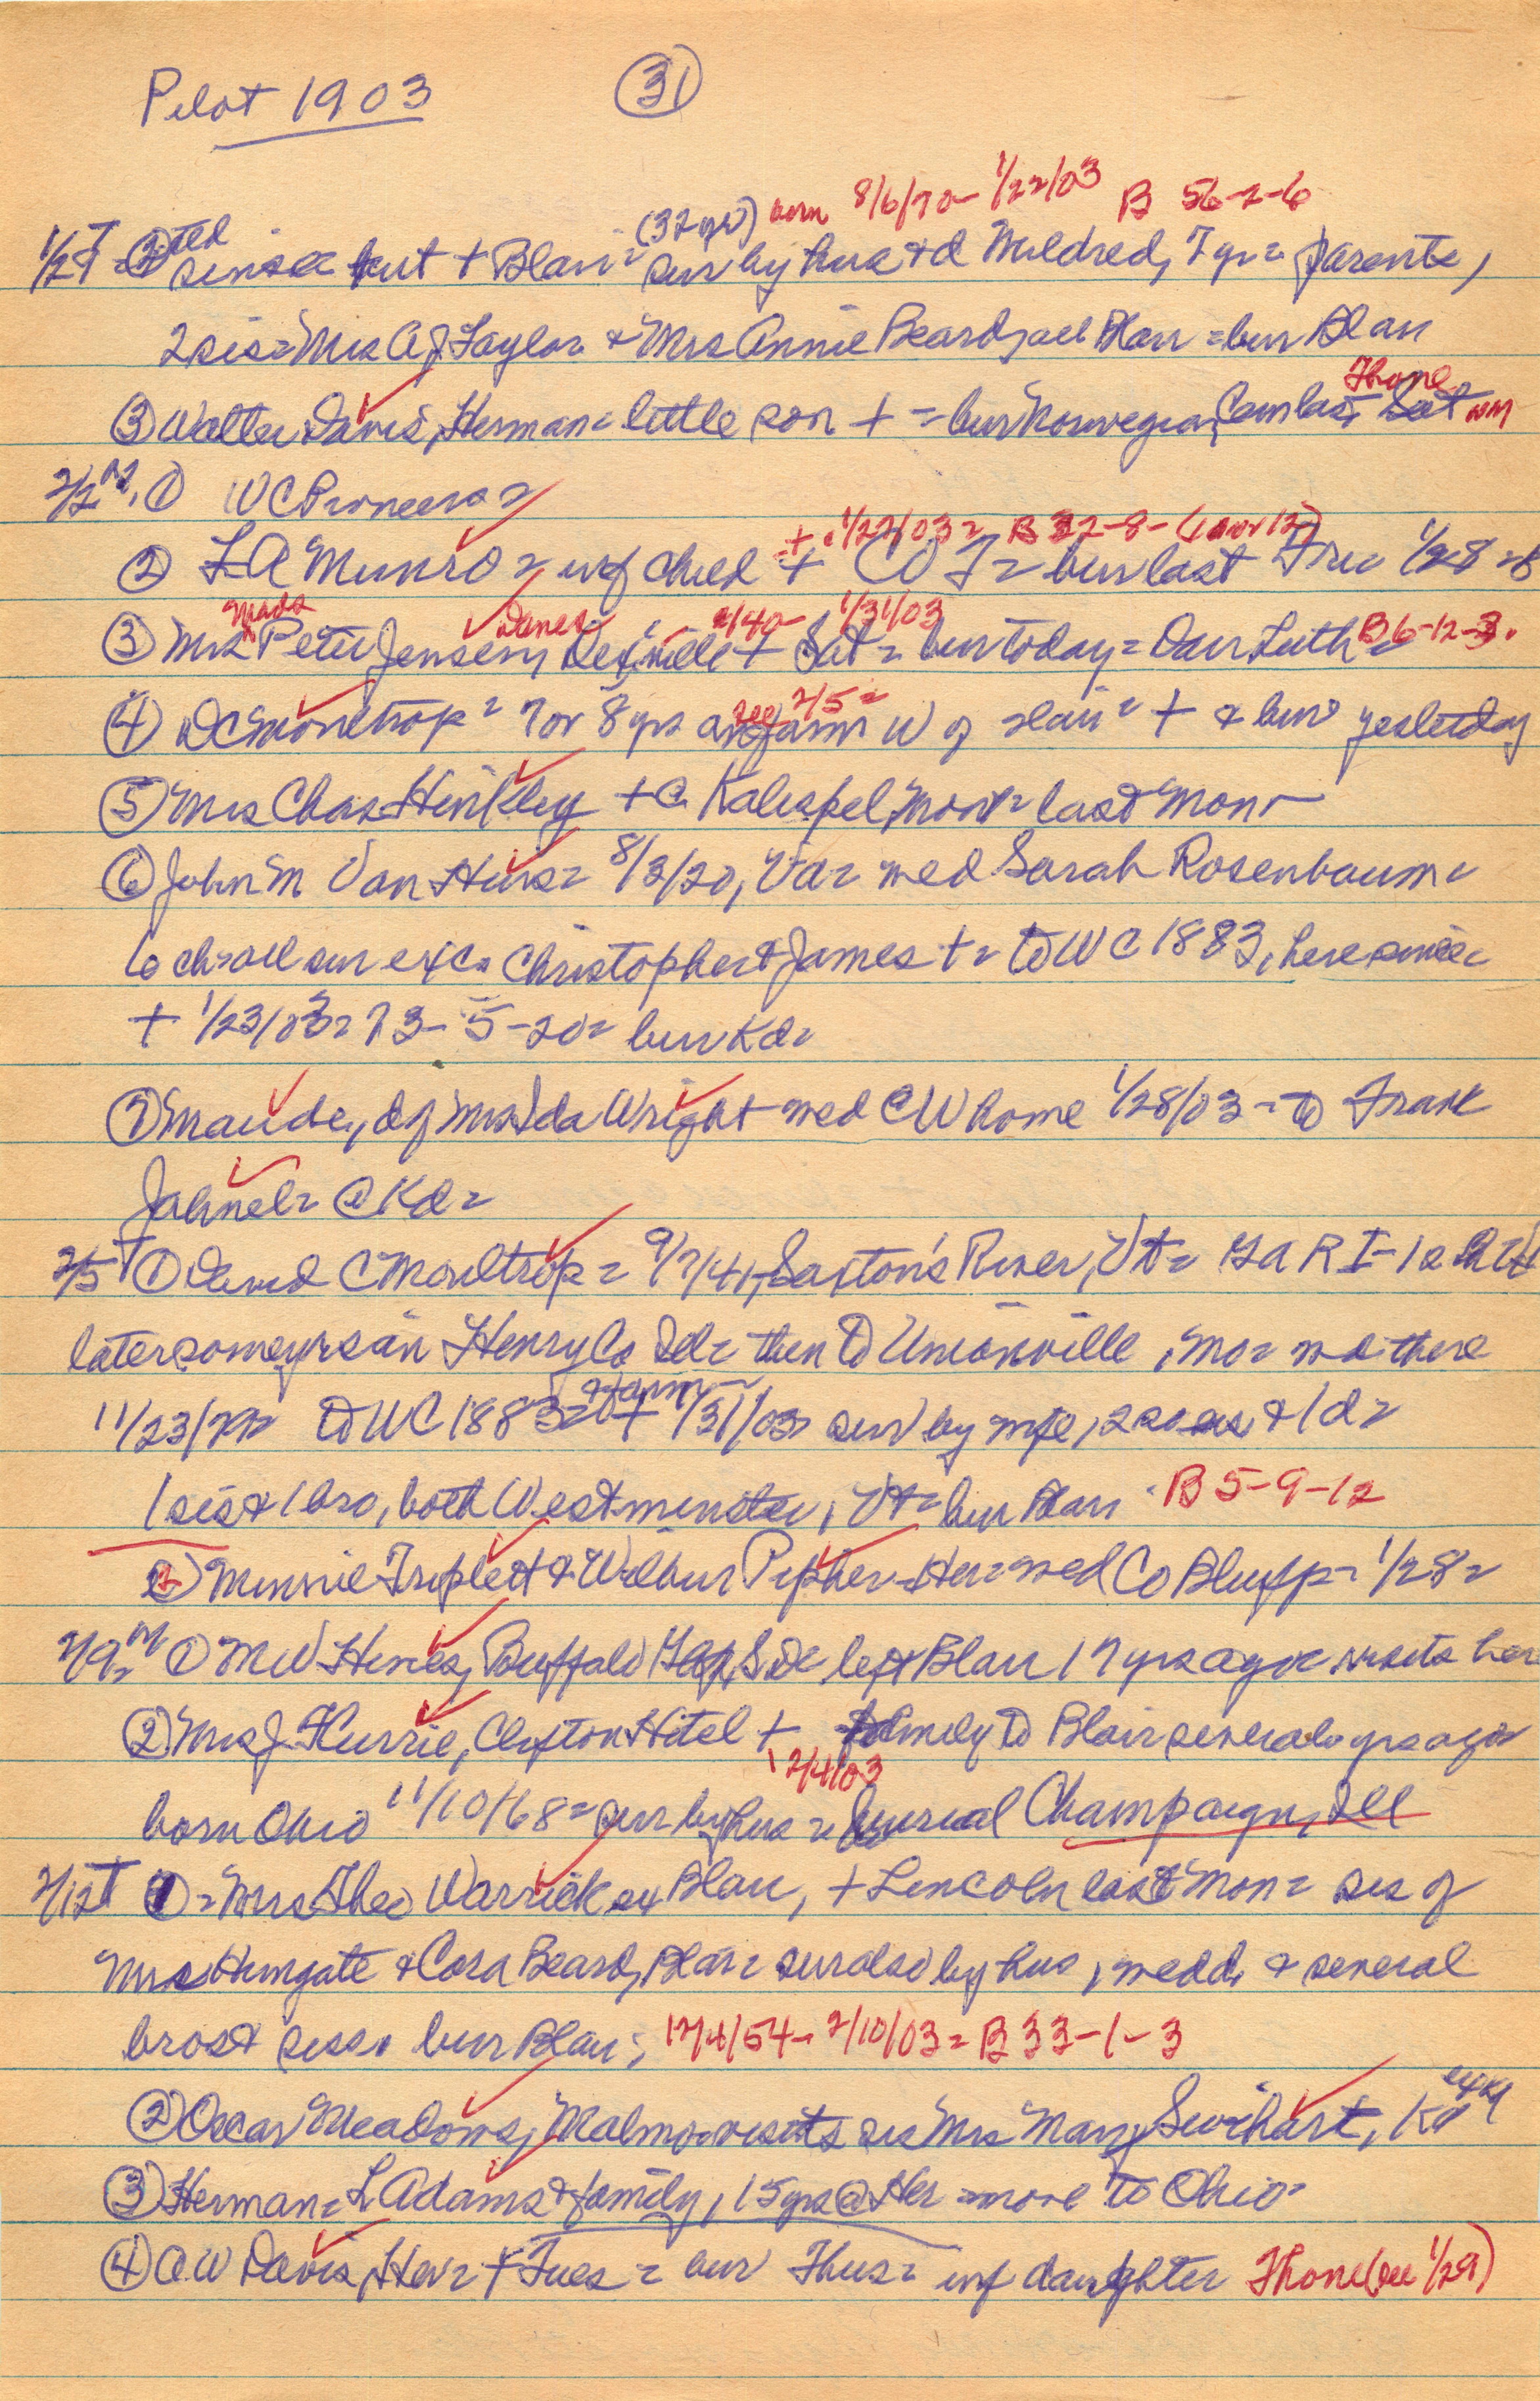 Pilot 1903 (31)
(32 yrs) born 8/6/70 - 1/22/03 B 56-2-6
1/29 T = (2) since hurt + Blair = sur by hus + d Mildred, 7 yr = parents,
2 sis = Mrs A J Taylor + Mrs Annie Beard, all Blair = bur Blair
Thone
(3) Walter Davis, Herman = little son + = bur Norwegian Cem last Sat
2/2 M, (1) W C Pioneers =
+ 1/27/03 = B 32-8-
(2) L A Munro = inf child + = bur last 1/28 =
Mads Danes 2/40 - 1/31/03
(3) Mrs Peter Jensen, + Sat = bur today = Dan Luth B 6-12-3.
see 2/5 =
(4) D C Moultrop = 7 or 8 yrs on farm W of Blair = + & bur yesterday
(5) Mrs Chas Hinkley + @ Kalispel, Mont = last Mon
(6) John M Van Huss = 8/3/20, Va = med Sarah Rosenbaum =
6 ch = all sur exc = Christopher & James + = to W C 1883, here since =
+ 1/23/03 = 73-5-20 = bur Kd =
(7) Maude, d of Mrs Ida Wright med C W home 1/28/03 - to Frank
Jahnel = @ Kd =
2/5 T (1) David C Moultrop = 9/7/41, Saxton's River, Vt = G A R I-12
later some yrs in Henry Co Ill = then to Unionville, Mo = md there
& farm
11/23/ to W C 1883 = + 1/31/03 = sur by wife, 2 sons & 1 d =
1 sis & 1 bro, both Westminster, Vt = bur Blair B 5-9-12
(2) Minnie Triplett & Wilbur Pipher - Her = med Co Bluffs - 1/28 =
2/9 = M (1) M W Hines, Buffalo Gap, S D = left Blair 17 yrs ago = visits here
(2) Mrs J Currie, Clifton Hotel + family to Blair several yrs ago =
2/4/03
born Ohio 11/10/68 = sur by hus = burial Champaign, Ill
2/12 T (1) = Mrs Theo Warrick ex Blair, + Lincoln last Mon = sis of
Mrs Hungate & Cora Beard, Blair = sur also by hus, med d, & several
bros & siss. bur Blair; 12/4/54 - 2/10/03 = B 33-1-3
(2) Oscar Meadows, Malmo = visits sis Mrs Mary Swihart, Kd
(3) Herman = L Adams & family, 15 yrs @ Her = move to Ohio =
(4) A W Davis, Her = + Tues = bur Thus = inf daughter Thone (see 1/29)